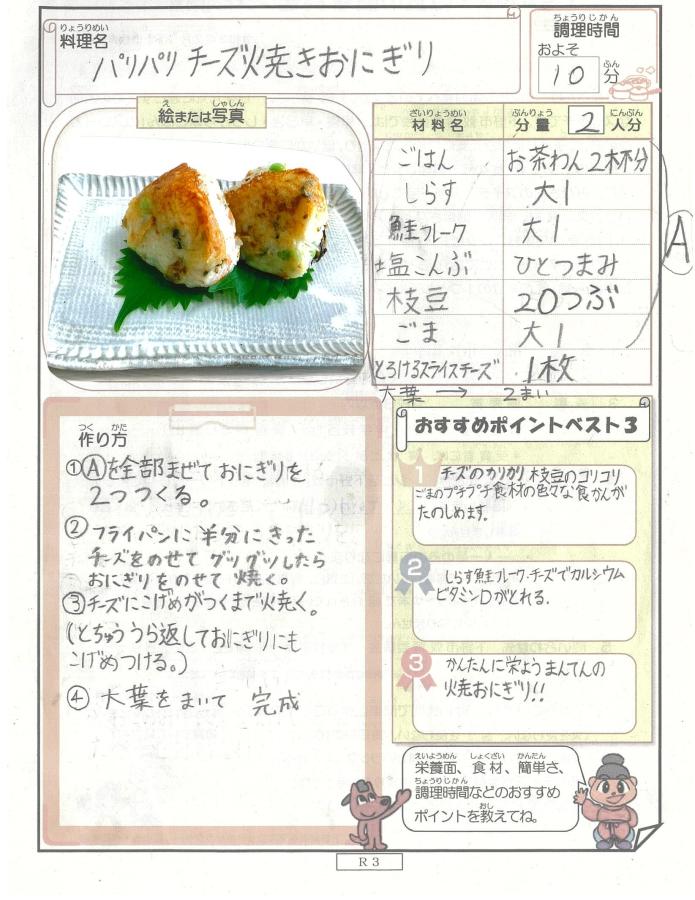 りょうりめい
料理名
パリパリ チーズ焼きおにぎり
ちょうりじかん
調理時間
およそ
10 分
ぷん
え しゃしん
絵または写真
ざいりょうめい ぶんりょう にんぶん
材料名 分量 2 人分
ごはん お茶わん2杯分
しらす 大1
鮭フレーク 大1
塩こんぶ ひとつまみ
枝豆 20つぶ
ごま 大1
とろけるスライスチーズ 1枚
大葉 → 2まい
A
つく かた
作り方
①Ⓐを全部まぜておにぎりを
2つつくる。
②フライパンに半分にきった
チーズをのせてグツグツしたら
おにぎりをのせて焼く。
③チーズにこげめがつくまで焼く。
(とちゅううら返しておにぎりにも
こげめつける。)
④ 大葉をまいて 完成
おすすめポイントベスト3
1
チーズのカリカリ 枝豆のコリコリ
ごまのプチプチ食材の色々な食かんが
たのしめます。
2
しらす鮭フレーク・チーズでカルシウム
ビタミンDがとれる.
3
かんたんに栄ようまんてんの
焼おにぎり!!
えいようめん しょくざい かんたん
栄養面、食材、簡単さ、
ちょうりじかん
調理時間などのおすすめ
おし
ポイントを教えてね。
R3